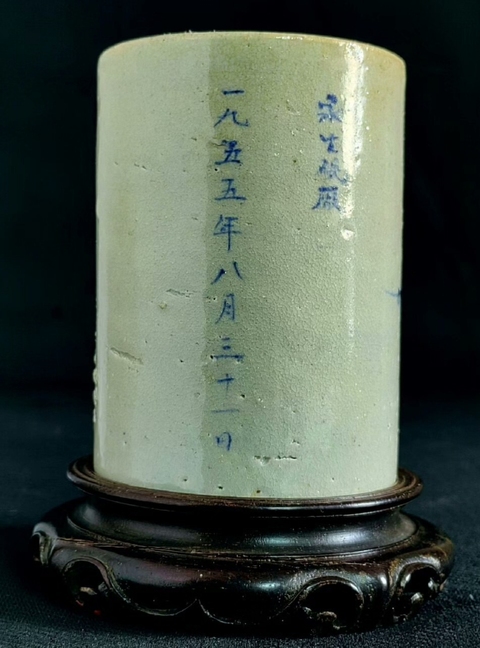 永生厰
一九五五年八月三十一日